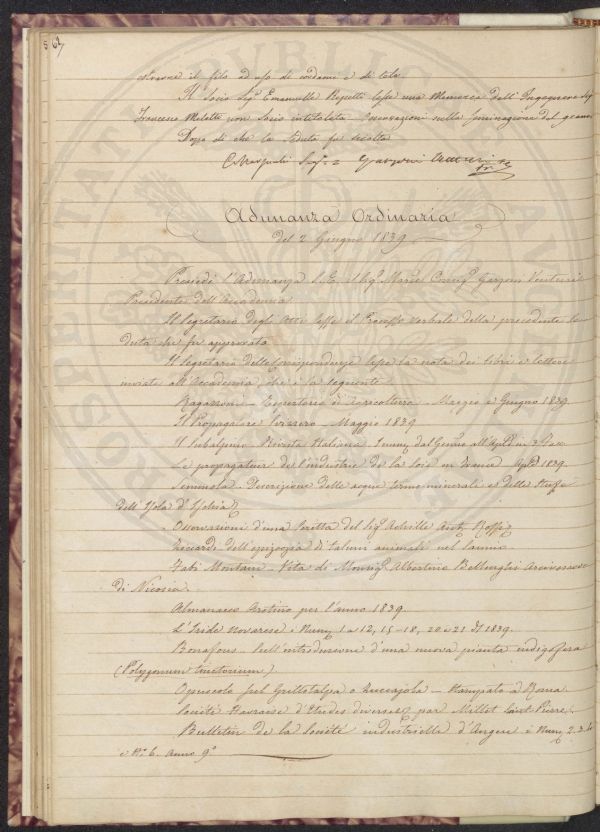 62
il filo ad uso di cordami e di tele.
Il Socio Sig.e Emanuelle Repetti lesse una Memoria dell'Ingegnere Sig.
Francesco Maletti non Socio intitolata nella seminazione del grano
Dopo di che la Seduta fu sciolta
Adunanza Ordinaria
del 2 Giugno 1839
Presiedè l'Adunanza S. E. il Sig.e March. Garzoni Venturi
Presidente dell'Accademia
Il Segretario degli Atti lesse il Processo Verbale della precedente Se
duta che fu approvato
Il Segretario delle Corrispondenze lesse la nota dei libri e lettere
inviate all'Accademia, che è la seguente
Ragazzoni - Repertorio di Agricoltura - Maggio e Giugno 1839
Il Propagatore Svizzero - Maggio 1839
Il Subalpino Rivista Italiana dal Genn. all'Aple in 3 Fasc.
Le propagateur de l'industrie de la Soie en France Aple 1839.
Semmola - Descrizione delle acque termo minerali e delle Stufe
dell'Isola d'Ischia
Osservazioni d'una del Sig.e Achille Ant.
dell'epizoozia di taluni animali nel
Fabi Montani - Vita di Monsig.e Albertino Bellenghi Arcivescovo
di Nicosia.
Almanacco Aretino per l'anno 1839.
L'Iride Novarese i Num. 1 a 12, 15-18, 20 e 21 del 1839.
Bonafous - Sull'introduzione d'una nuova pianta indigofera
(Polygonum tinctorium)
Opuscolo sul Grillotalpa o Zuccajola - Stampato a Roma
Société Havraise d'Etudes diverses par Millet Saint Pierre.
Bulletin de la Société industrielle d'Angers i Num. 2. 3.
e N.o 6. anno 9.o